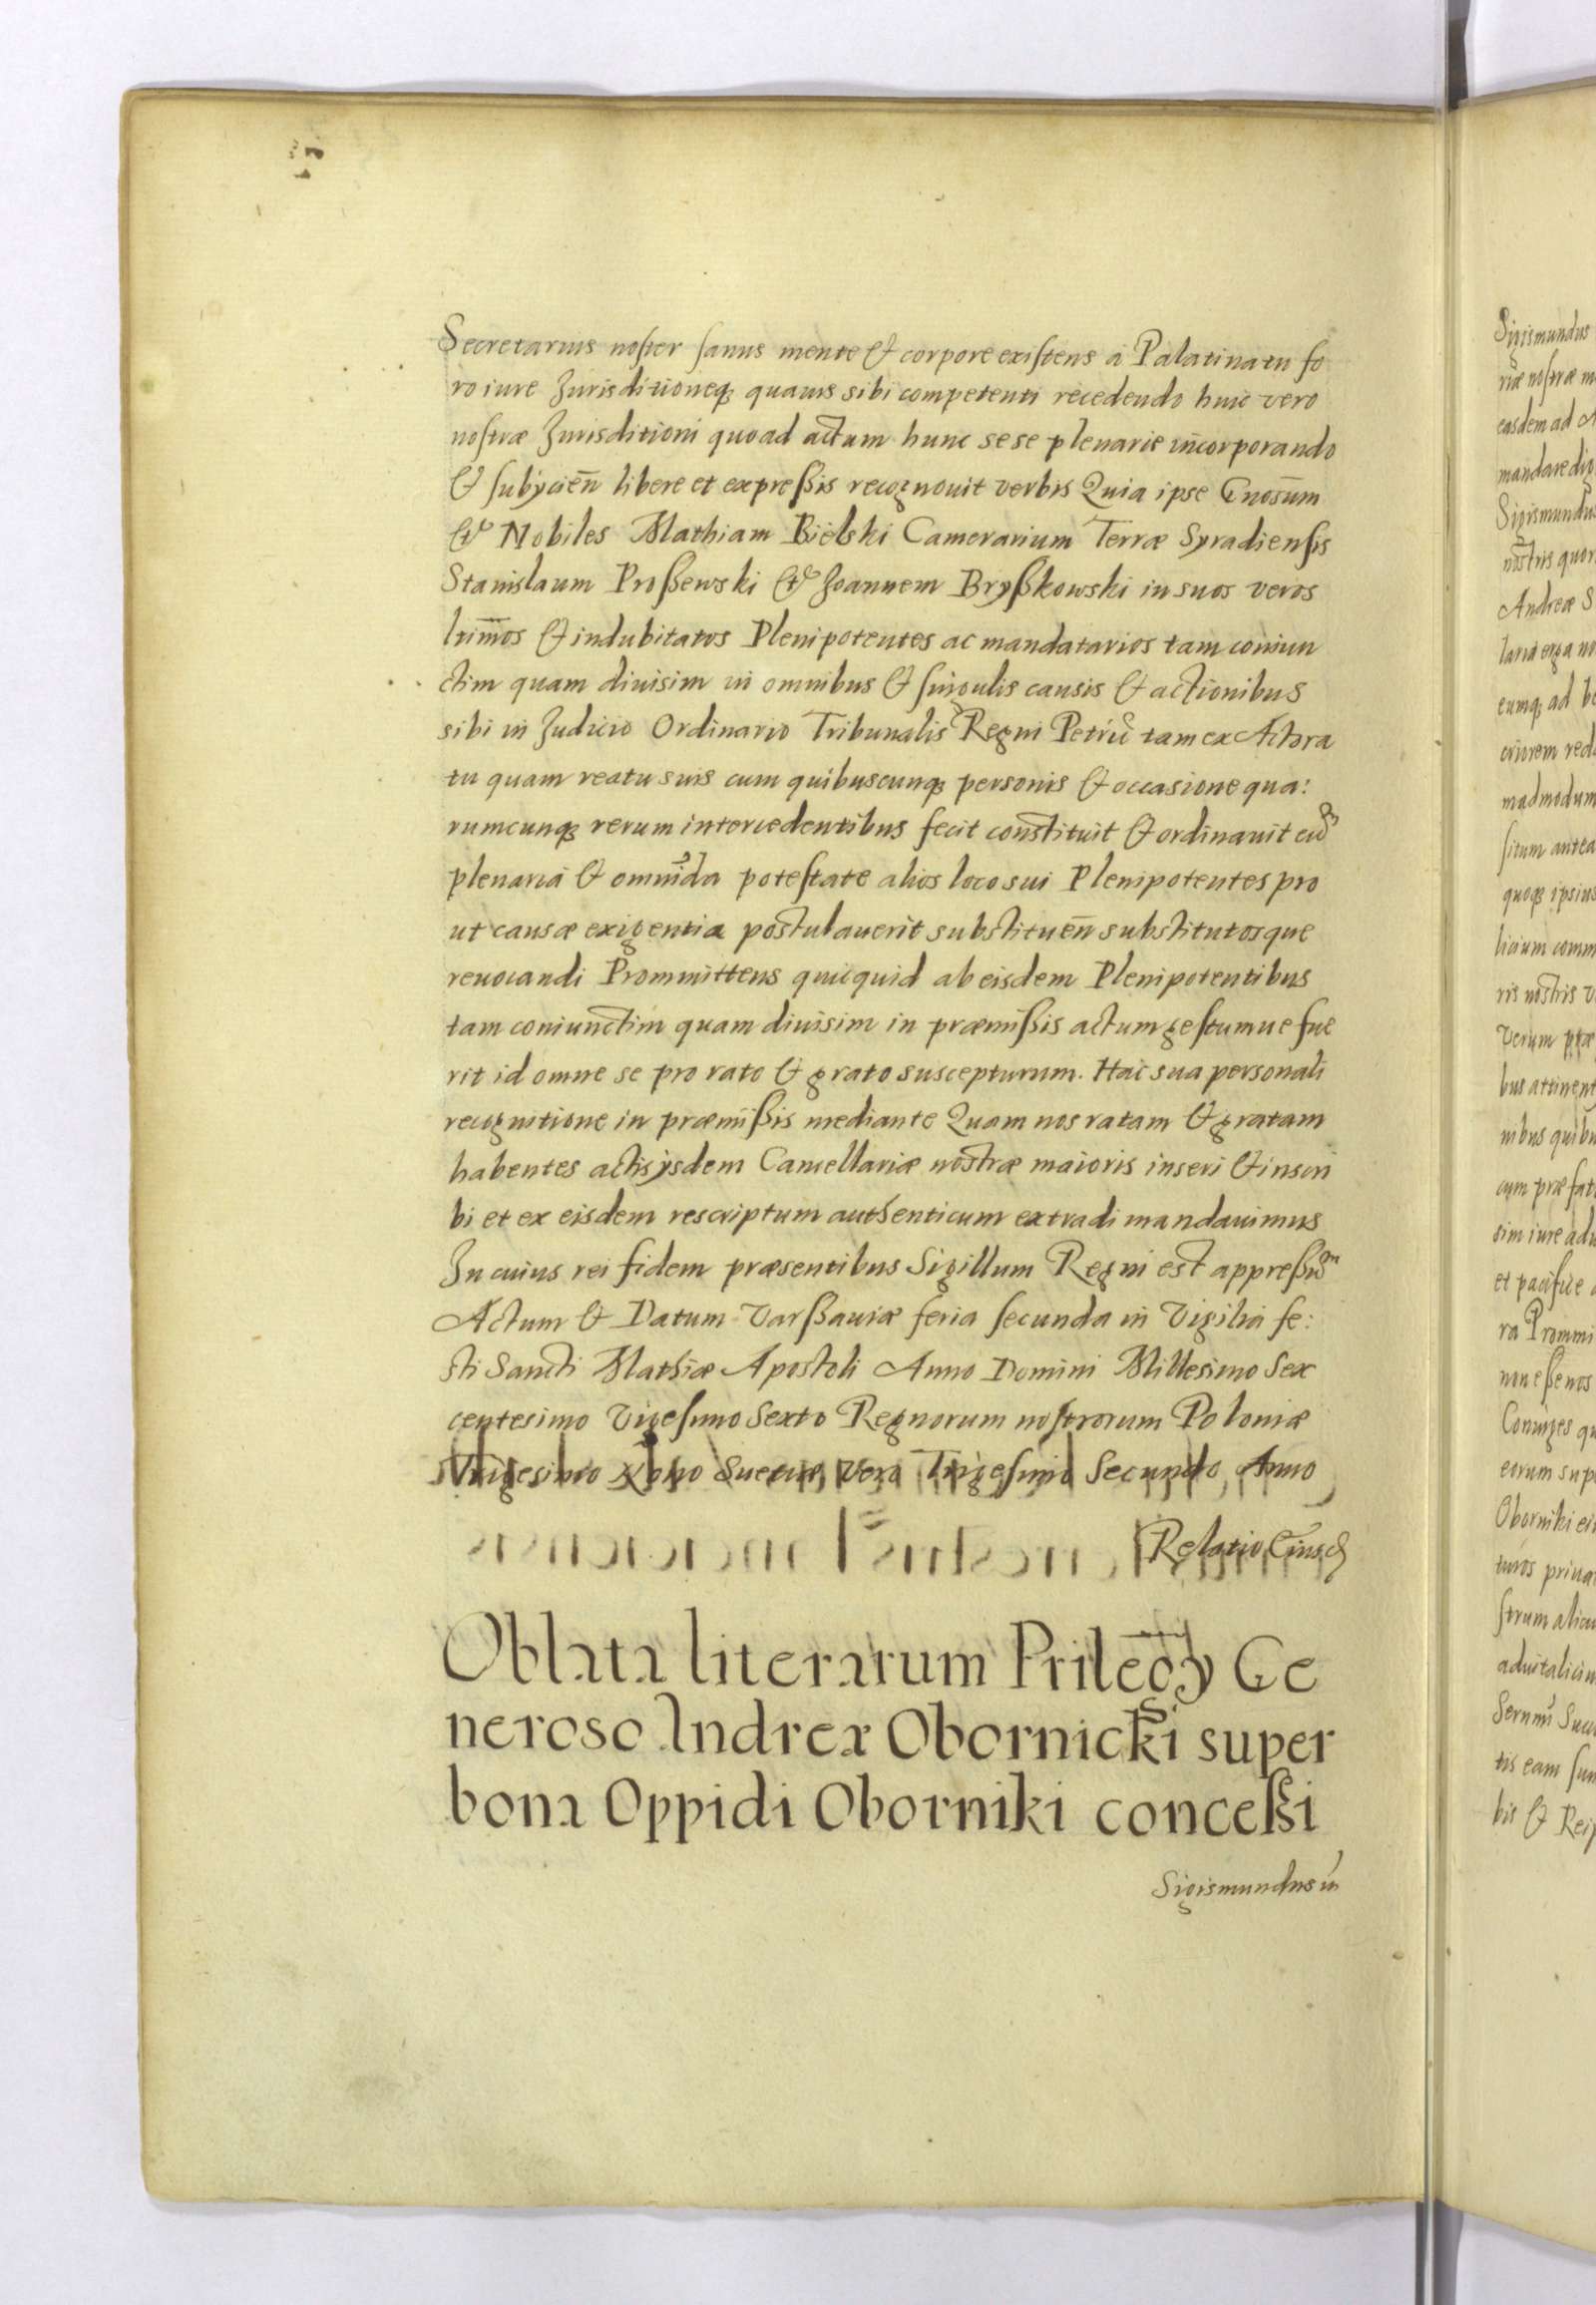 Secretarius noster sanus mente & corpore existens á Palatinatu fo
ro iure Jurisditioneq3 quauis sibi competenti recedendo huic vero
nostræ Jurisditioni quoad actum hunc sese plenarie incorporando
& subÿcien̄ libere et expreßis recognouit verbis Quia ipse Gnosum̄
& Nobiles Mathiam Bielski Camerarium Terræ Syradiensis
Stanislaum Proßewski & Joannem Bryßkowski in suos veros
ltim̄os & indubitatos Plenipotentes ac mandatarios tam coniun
ctim quam diuisim in omnibus & singulis causis & actionibus
sibi in Judicio Ordinario Tribunalis Regni Petric̄ tam ex Actora
tu quam reatu suis cum quibuscunq3 personis & occasione qua:
rumcunq3 rerum intercedentibus fecit constituit & ordinauit cū
plenaria & omnida potestate alios loco sui Plenipotentes pro
ut causæ exigentia postulauerit substituen̄ substitutosque
reuocandi Prommittens quicquid ab eisdem Plenipotentibus
tam coniunctim quam diuisim in præmißis actum gestumue fue
rit id omne se pro rato & grato suscepturum. Hac sua personali
recognitione in præmißis mediante Quam nos ratam & gratam
habentes actis ÿsdem Cancellariæ nostræ maioris inseri & inscri
bi et ex eisdem rescriptum authenticum extradi mandauimus
In cuius rei fidem præsentibus Sigillum Regni est appreßum
Actum & Datum Varßauiæ feria secunda in Vigilia fe:
sti Sancti Mathiæ Apostoli Anno Domini Millesimo Sex
centesimo Vigesimo Sexto Regnorum nostrorum Poloniæ
Trigesimo Nono Sueciæ vero Trigesimo Secundo Anno
Relatio Eiusd
Oblata literarum Prilegy Ge
neroso Andreæ Obornicki super
bona Oppidi Oborniki conceßi
Sigismundus
Sigismundus
riæ nostræ m
easdem ad
mandare dig
Sigismundus
nostris quor
Andreæ S
laria erga no
eumq3 ad be
criorem red
madmodum
situm antea
quoq3 ipsius
licium comm
ris nostris
Verum præ
bus attinent
nibus quibu
cum præfat
sim iure adu
et pacifice
ra Prommi
non eße nos
Coniuges qu
eorum sup
Oborniki ei
turos priua
strum alicu
aduitaliciu
Sernmi Succ
tis eam
bis & Reip